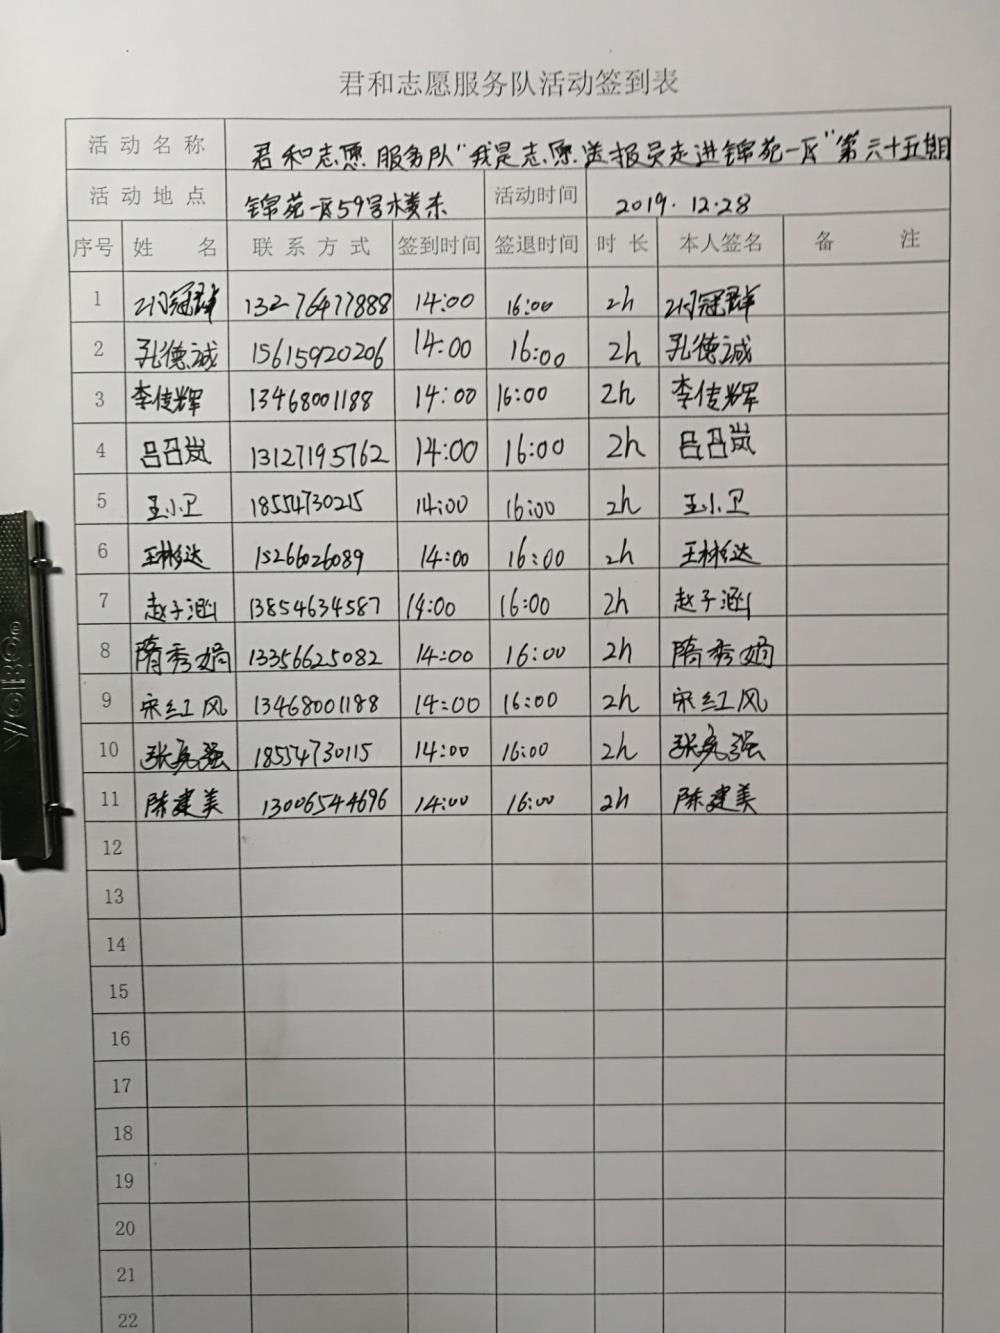 君和志愿服务队活动签到表
活动名称 君和志愿服务队"我是志愿送报员走进锦苑一区"第六十五期
活动地点 锦苑一区59号楼东 活动时间 2019.12.28
序号 姓名 联系方式 签到时间 签退时间 时长 本人签名 备注
1 冠群 13276477888 14:00 16:00 2h 冠群
2 孔德诚 15615920206 14:00 16:00 2h 孔德诚
3 李传辉 13468001188 14:00 16:00 2h 李传辉
4 吕召岚 13127195762 14:00 16:00 2h 吕召岚
5 王小卫 18554730215 14:00 16:00 2h 王小卫
6 王彬达 15266026089 14:00 16:00 2h 王彬达
7 赵子涵 13854634587 14:00 16:00 2h 赵子涵
8 隋秀娟 13356625082 14:00 16:00 2h 隋秀娟
9 宋红风 13468001188 14:00 16:00 2h 宋红风
10 张亮强 18554730115 14:00 16:00 2h 张亮强
11 陈建美 13006544696 14:00 16:00 2h 陈建美
12
13
14
15
16
17
18
19
20
21
22